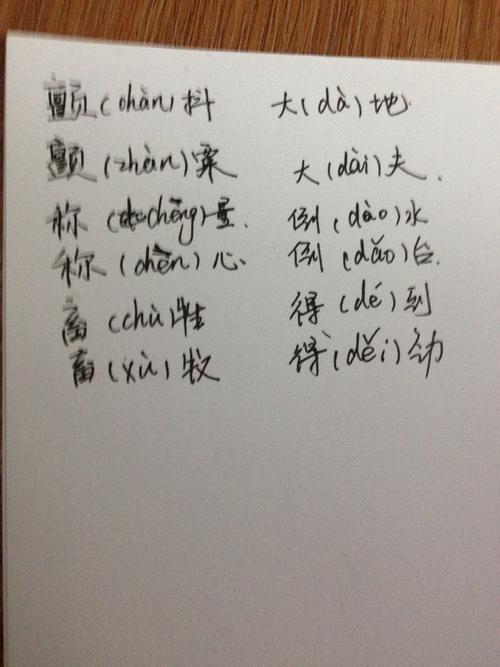 颤(chàn)抖 大(dà)地
颤(zhàn)栗 大(dài)夫.
称(chēng)量. 倒(dào)水
称(chèn)心. 倒(dǎo)台.
畜(chù)牲 得(dé)到
畜(xù)牧 得(děi)